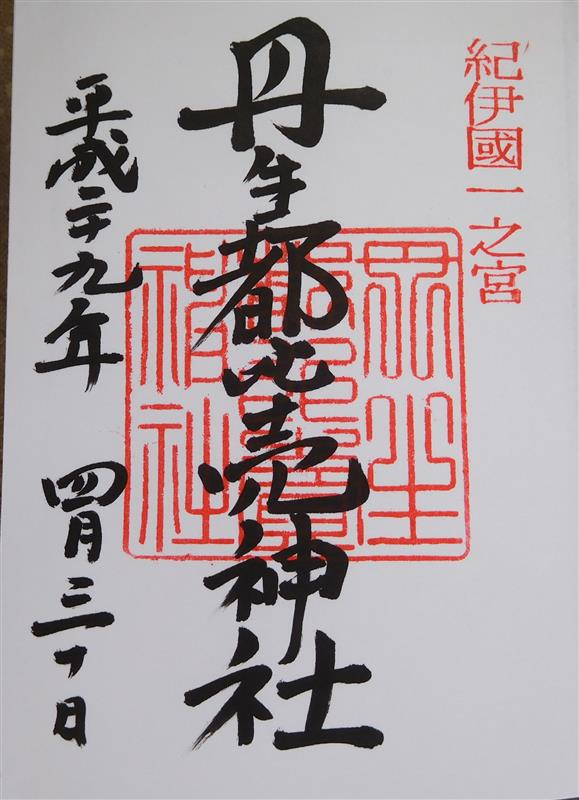 紀伊國一之宮
丹生都比売神社
丹生都比賣神社
平成二十九年 四月三十日